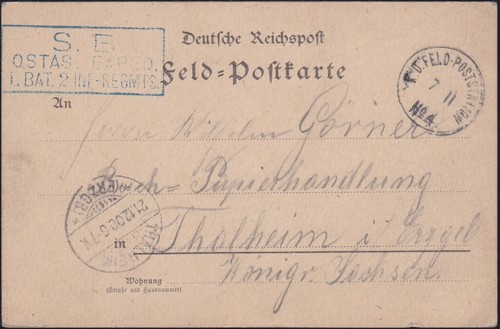 S. B.
O.STAS. EXPED.
I. BAT. 2 INF.-REGMTS.
Deutsche Reichspost
Feld-Postkarte
K.D. FELD-POSTSTATION
7 11
No 4
An
Herrn Wilhelm Görner
Buch- Papierhandlung
THALHEIM
(ERZGB)
21.12.00.6-7N.
in Thalheim i/ Erzgeb
Königr. Sachsen.
Wohnung
(Straße und Hausnummer)